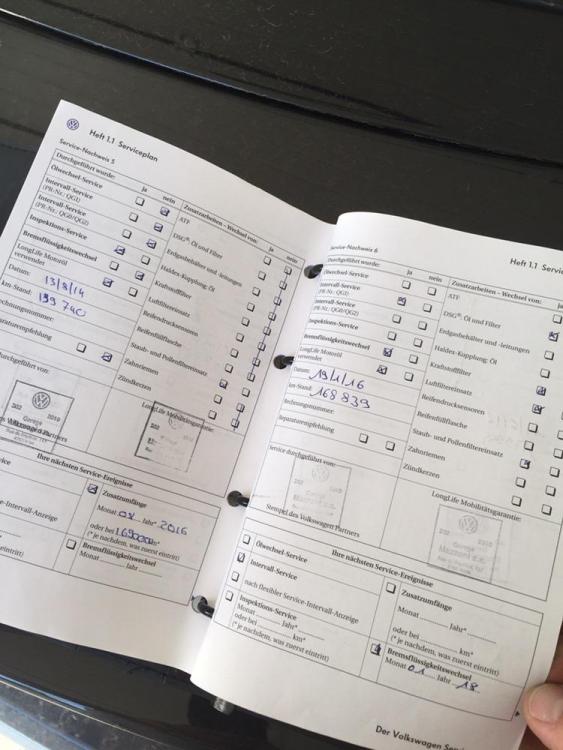 Heft 1.1 Serviceplan
Service-Nachweis 5
Durchgeführt wurde:
ja nein
Ölwechsel-Service
Intervall-Service
(PR-Nr.: QG1)
Intervall-Service
(PR-Nr.: QG0/QG2)
Inspektions-Service
Bremsflüssigkeitswechsel
LongLife Motoröl
verwendet
Datum: 13/8/14
km-Stand: 139 740
Rechnungsnummer:
Reparaturempfehlung
Durchgeführt von:
Zusatzarbeiten - Wechsel von:
ATF
DSG®: Öl und Filter
Erdgasbehälter und -leitungen
Haldex-Kupplung: Öl
Kraftstofffilter
Luftfiltereinsatz
Reifendrucksensoren
Reifenfüllflasche
Staub- und Pollenfiltereinsatz
Zahnriemen
Zündkerzen
LongLife Mobilitätsgarantie:
202 2010
Garage
des Volkswagen Partners
Ihre nächsten Service-Ereignisse
Service-Intervall-Anzeige
was zuerst eintritt)
Zusatzumfänge
Monat 08 Jahr* 2016
oder bei 169000 km*
(* je nachdem, was zuerst eintritt)
Bremsflüssigkeitswechsel
Monat Jahr
Service-Nachweis 6
Heft 1.1 Servi
Durchgeführt wurde:
ja nein
Ölwechsel-Service
Intervall-Service
(PR-Nr.: QG1)
Intervall-Service
(PR-Nr.: QG0/QG2)
Inspektions-Service
Bremsflüssigkeitswechsel
LongLife Motoröl
verwendet
Datum: 19/1/16
km-Stand: 168 839
Rechnungsnummer:
Reparaturempfehlung
Service durchgeführt von:
Stempel des Volkswagen Partners
Zusatzarbeiten - Wechsel von:
ja
ATF
DSG®: Öl und Filter
Erdgasbehälter und -leitungen
Haldex-Kupplung: Öl
Kraftstofffilter
Luftfiltereinsatz
Reifendrucksensoren
Reifenfüllflasche
Staub- und Pollenfiltereinsatz
Zahnriemen
Zündkerzen
LongLife Mobilitätsgarantie:
Garage
Mazzoni s.a.
Ihre nächsten Service-Ereignisse
Ölwechsel-Service
Intervall-Service
nach flexibler Service-Intervall-Anzeige
Inspektions-Service
Monat Jahr*
oder bei km*
(* je nachdem, was zuerst eintritt)
Zusatzumfänge
Monat Jahr*
oder bei km*
(* je nachdem, was zuerst eintritt)
Bremsflüssigkeitswechsel
Monat 01 Jahr 18
Der Volkswagen Ser